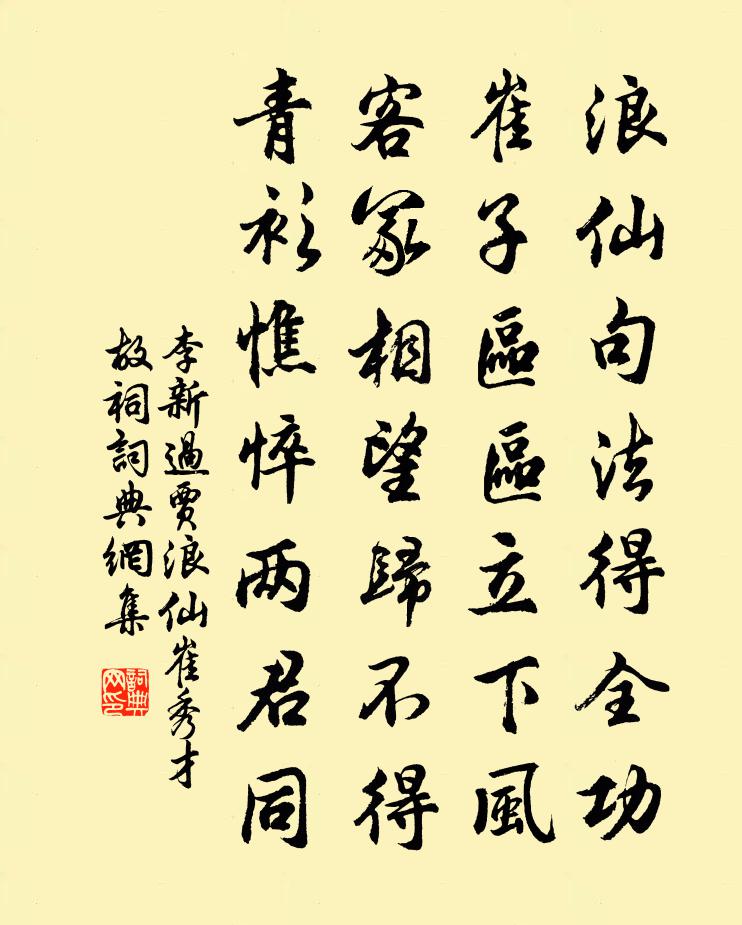 浪仙句法得全功
崔子區區立下風
客冢相望歸不得
青衫憔悴两君同
李新過賈浪仙崔秀才
故祠詞典網集
詞典网印